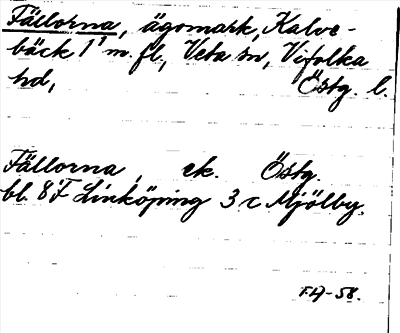 Fällorna, ägomark, Kalve-
bäck 1¹ m. fl., Veta sn, Vifolka
hd, Östg. l.
Fällorna, ek. Östg.
bl. 8 F Linköping 3 c Mjölby.
F.A-58.